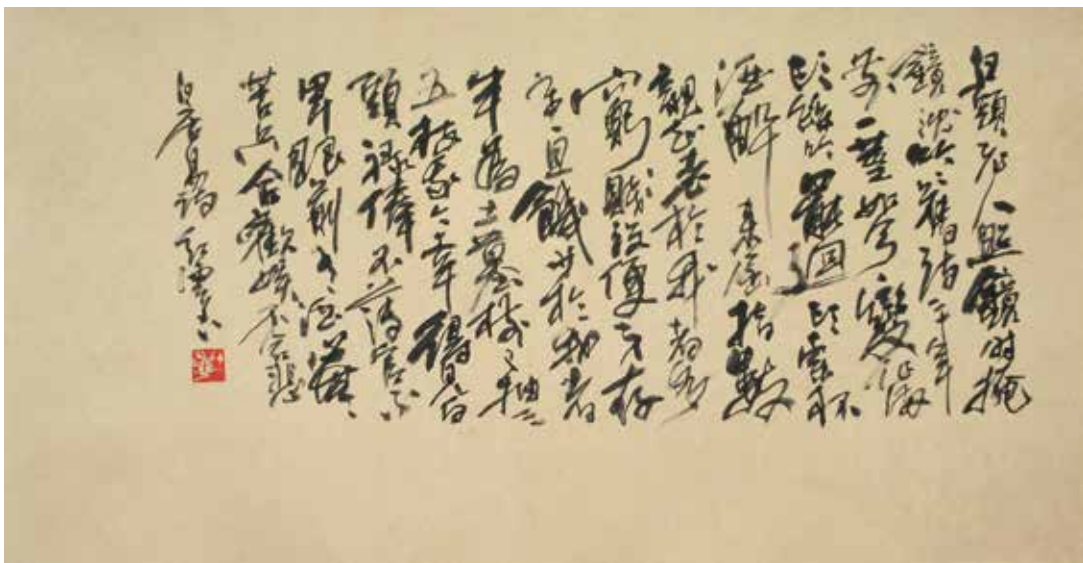 白頭老人照鏡時掩
鏡沉吟吟舊詩二十年
前一莖如今變作滿
頭絲吟罷迴頭索杯
酒醉來屈指數
親知老於我者多
窮賤設使身存
寒且饑少於我者
半為土墓樹已抽三
五枝我今幸得見白
頭祿俸不薄官不
卑眼前有酒心無
苦只合歡娛不合悲
白居易詩